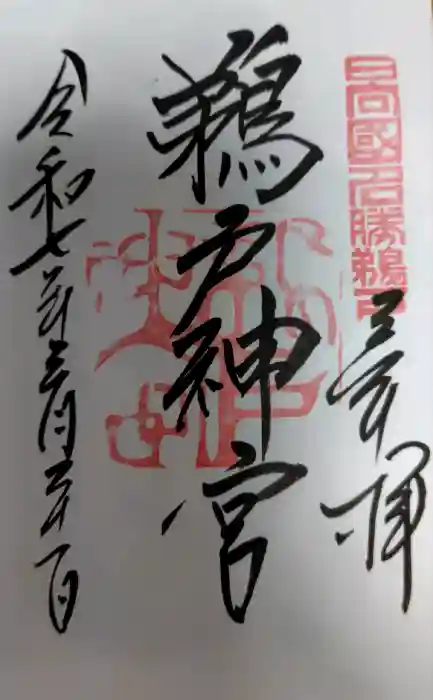 日向國名勝鵜戸
奉拝
鵜戸神宮
令和七年三月二十一日